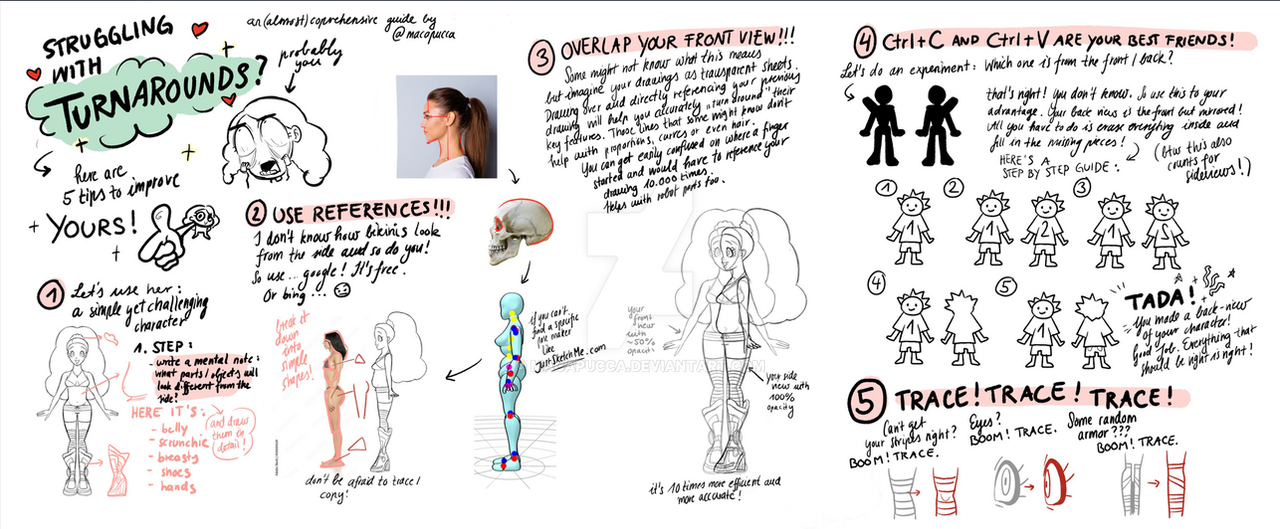 STRUGGLING
WITH
TURNAROUNDS?
an (almost) coprehensive guide by
@macapucca
probably
you
here are
5 tips to improve
+ YOURS!
1 Let's use her:
a simple yet challenging
character
1. STEP:
- write a mental note:
what parts/objects will
look different from the
side?
HERE IT'S:
- belly
- scrunchie
- breasts
- shoes
- hands
(and draw
them in
detail!)
2 USE REFERENCES!!!
I don't know how bikinis look
from the side and so do you!
So use... google! It's free.
Or bing...
break it
down
into
simple
shapes!
don't be afraid to trace/
copy!
if you can't
find a specific
pose maker
like
JustSketchMe.com
3 OVERLAP YOUR FRONT VIEW!!!
Some might not know what this means
but imagine your drawings as transparent sheets.
Drawing over and directly referencing your previous
drawing will help you accurately "turn around" their
key features. Those lines that some might know don't
help with proportions, curves or even hair.
You can get easily confused on where a finger
started and would have to reference your
drawing 10.000 times.
Helps with robot parts too.
your
front
view
with
~50%
opacity
your side
view with
100%
opacity
it's 10 times more efficient and
more accurate!
4 Ctrl+C AND Ctrl+V ARE YOUR BEST FRIENDS!
Let's do an experiment: Which one is from the front/back?
that's right! you don't know. So use this to your
advantage. Your back view is the front but mirrored!
All you have to do is erase everything inside and
fill in the missing pieces!
(btw this also
counts for
sideviews!)
HERE'S A
STEP BY STEP GUIDE:
1 2 3
1 1 2 1
4 5
1 1
TADA!
You made a back-view
of your character!
Good job. Everything that
should be right is right!
5 TRACE! TRACE! TRACE!
Can't get
your stripes right?
BOOM! TRACE.
Eyes?
BOOM! TRACE.
Some random
armor???
BOOM! TRACE.